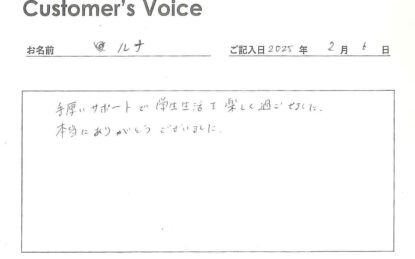 Customer's Voice
お名前 ルナ
ご記入日 2025 年 2 月 6 日
手厚いサポートで学生生活を楽しく過ごせました。
本当にありがとうございました。